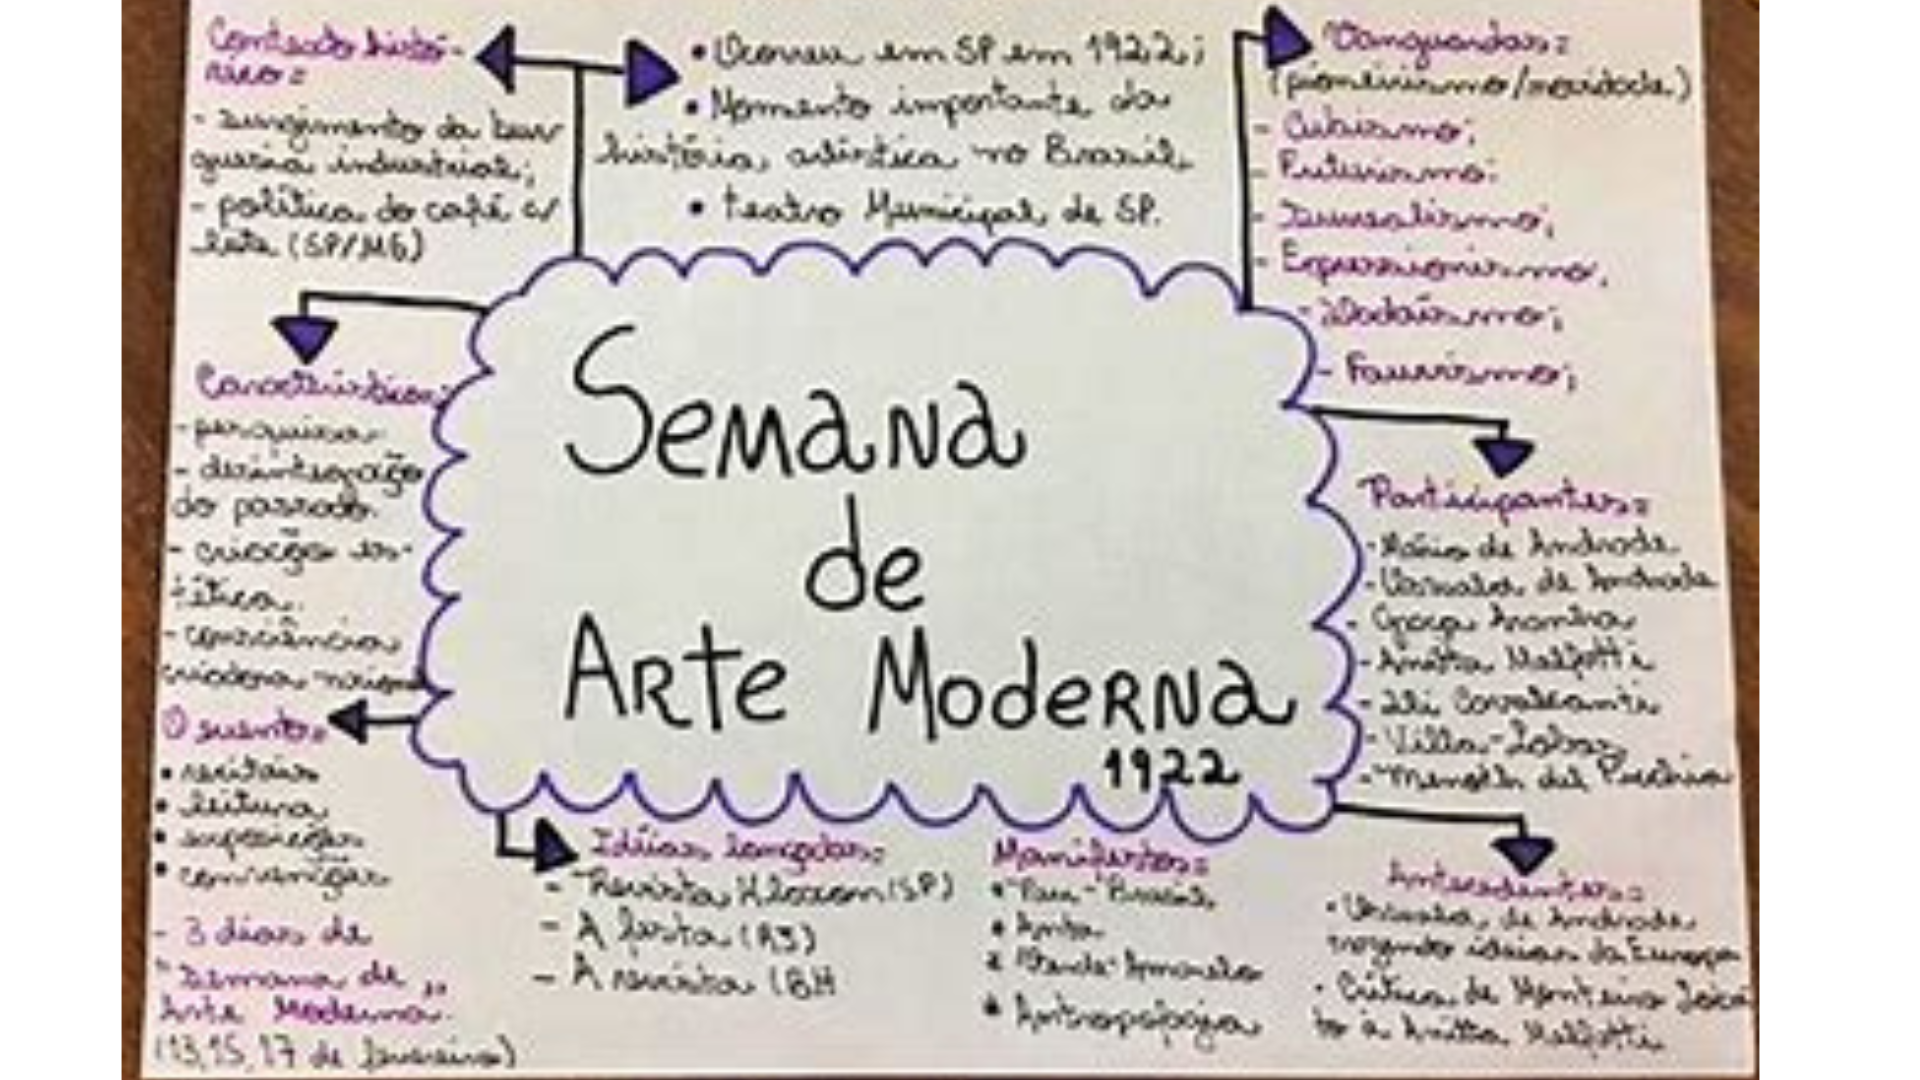 Contexto histó-
rico:
- surgimento da bur
guesia industrial;
- política do café c/
leite (SP/MG)
• Ocorreu em SP em 1922;
• Momento importante da
história artística no Brasil
• teatro Municipal de SP.
Vanguardas:
(pioneirismo/novidade)
- Cubismo;
- Futurismo;
- Surrealismo;
- Expressionismo,
- Dadaísmo;
- Fauvismo;
Características:
- pesquisa
- desintegração
do passado.
- criação es-
tética.
- consciência
criadora
Semana
de
Arte Moderna
1922
Participantes:
- Mário de Andrade
- Oswald de Andrade
- Graça Aranha
- Anitta Malfatti
- Di Cavalcanti
- Villa-Lobos
- Menotti del Picchia
O evento:
• recitais
• leitura
• exposições
• convenções
- 3 dias de
"Semana de
Arte Moderna"
(13,15,17 de fevereiro)
Idéias lançadas:
- Revista Klaxon (SP)
- A festa (RJ)
- A revista (BH
Manifestos:
• Pau-Brasil
• Anta
• Verde-Amarelo
• Antropofagia
Antecedentes:
• Oswald de Andrade
trazendo idéias da Europa
• Crítica de Monteiro Loba
to à Anitta Malfatti